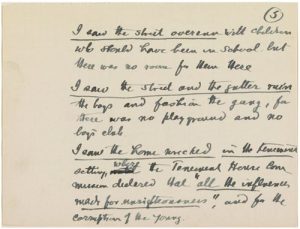 (5)
I saw the street overrun with children
who should have been in school but
there was no room for them there
I saw the street and the gutter ruin
the boys and fashion the gang, for
there was no playground and no
boys club
I saw the home wrecked in the tenement
setting, where the Tenement House Com
mission declared that all the influences
made for unrighteousness", and for the
corruption of the young.